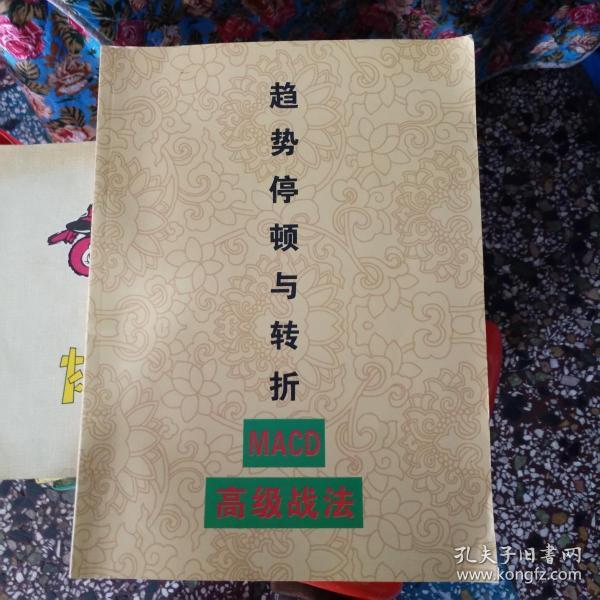 趋势停顿与转折
MACD
高级战法
孔夫子旧书网
www.kongfz.com